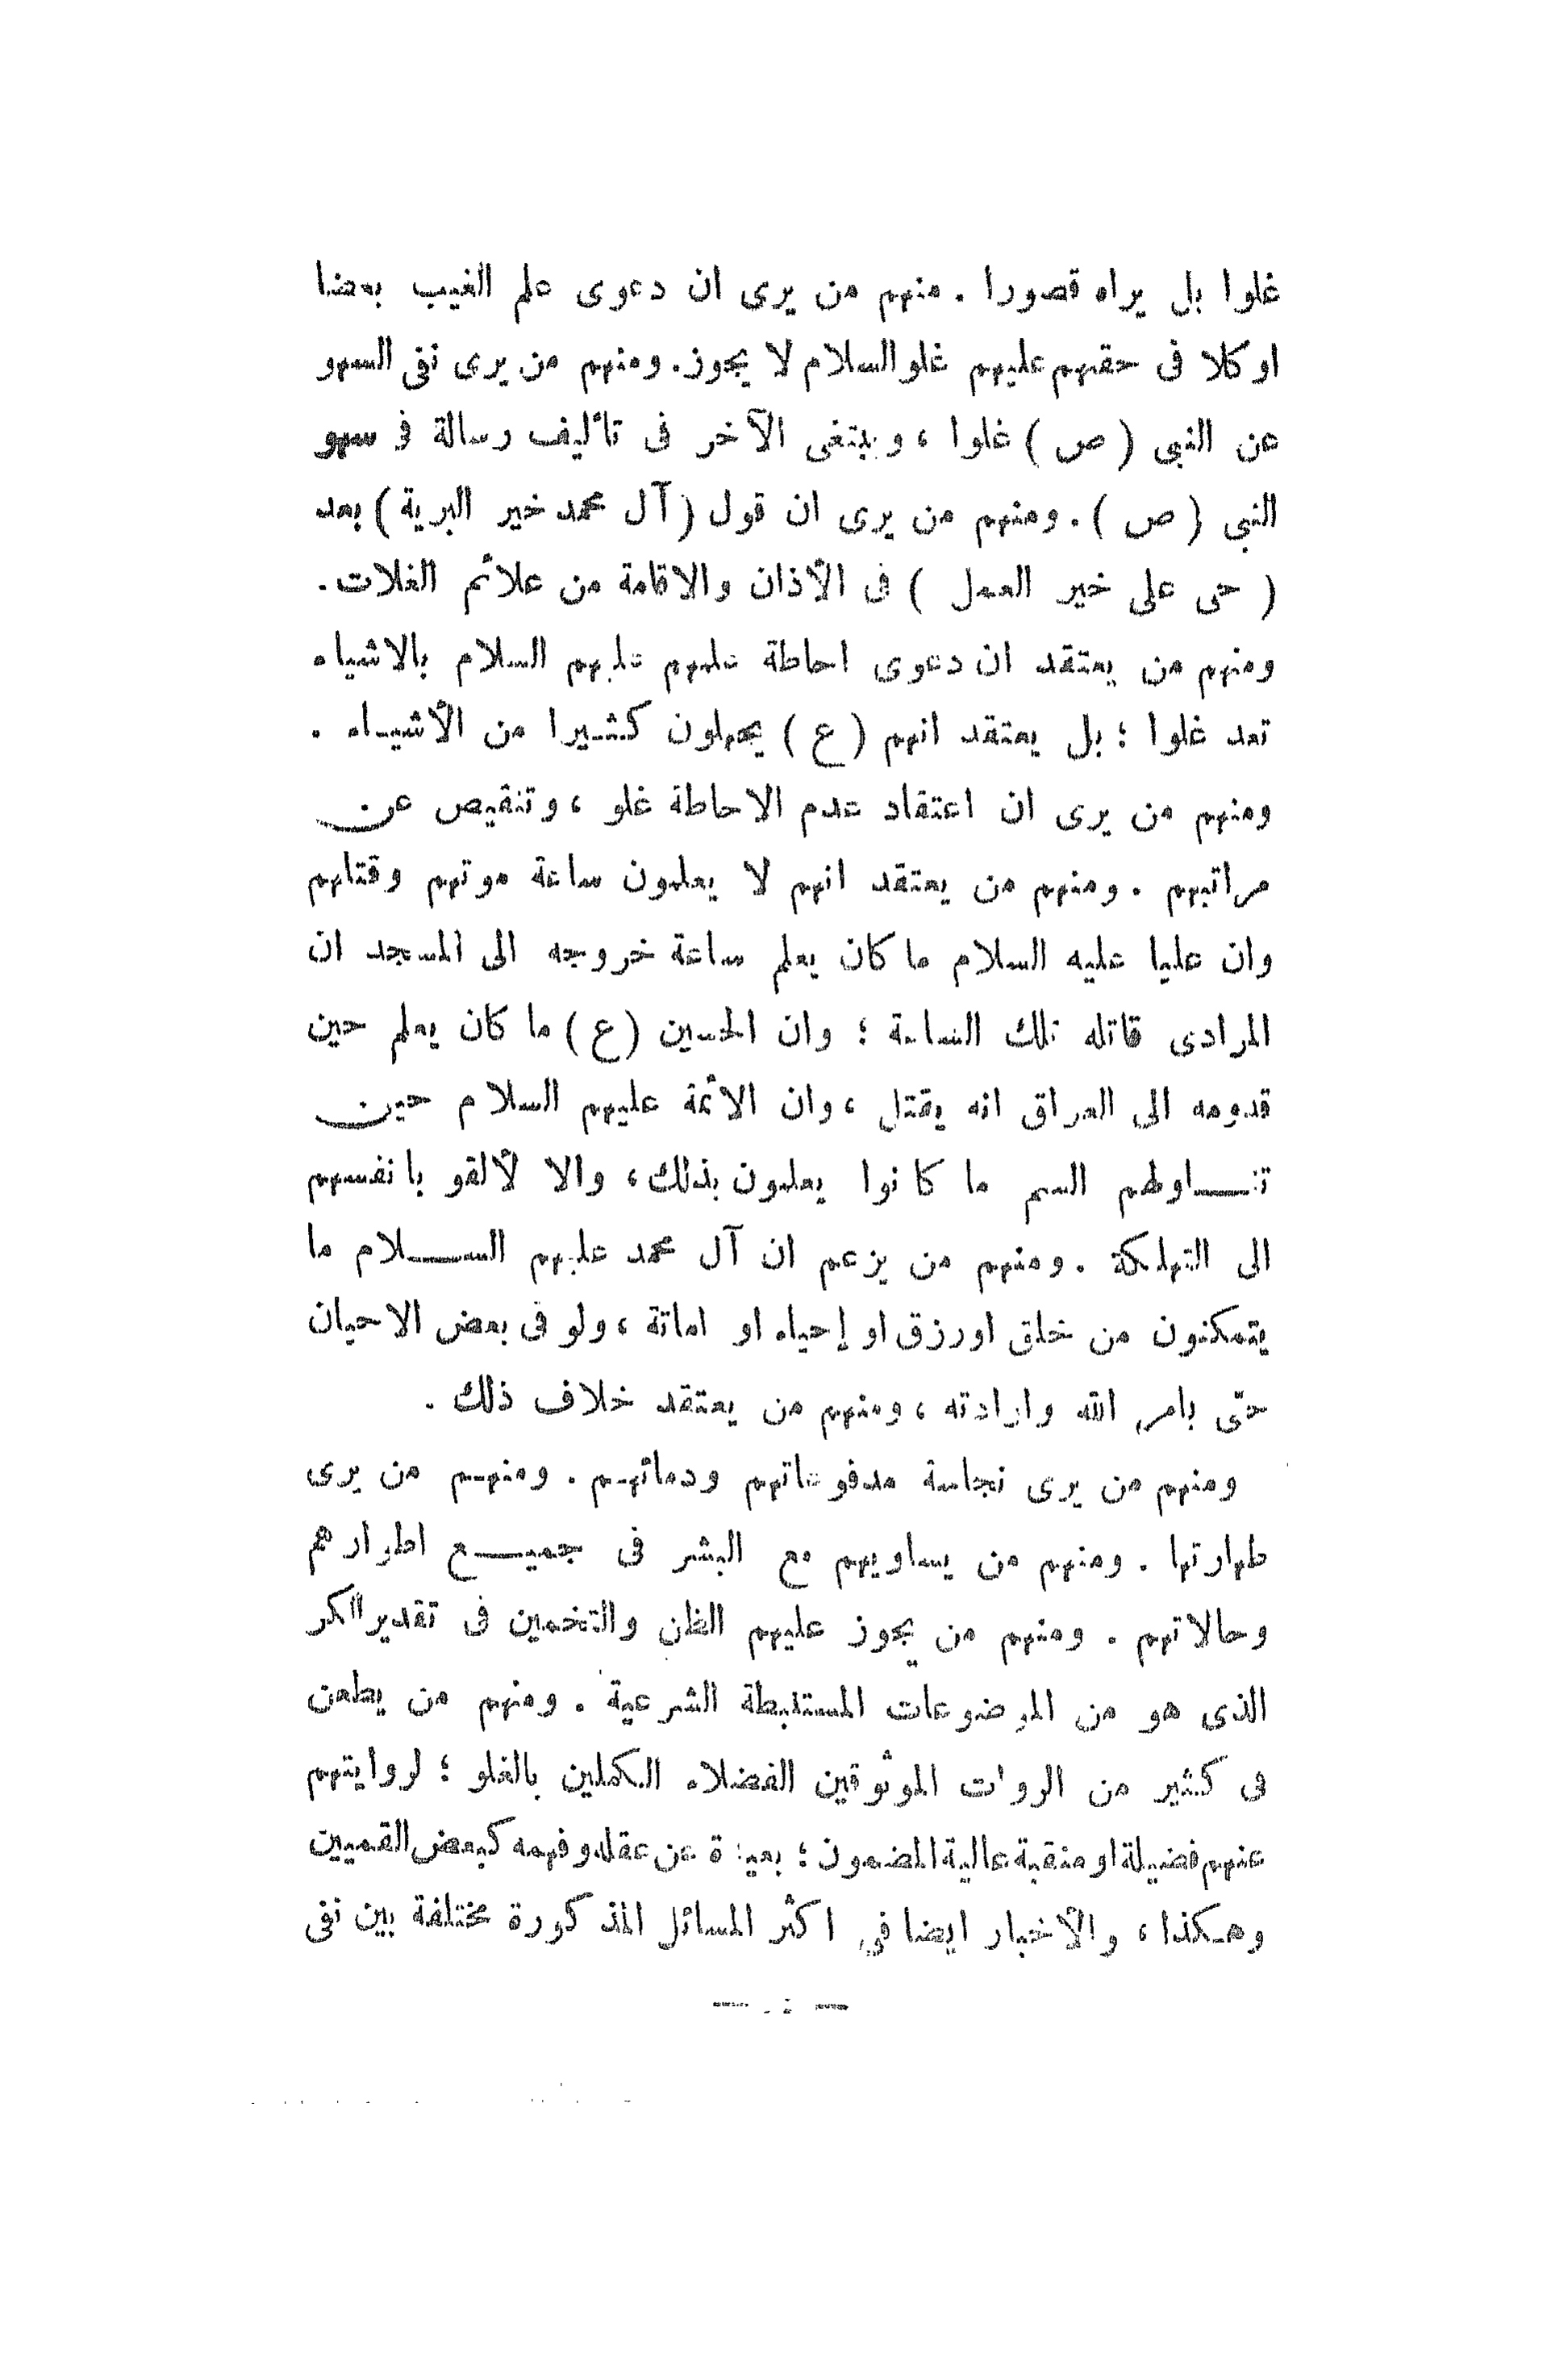 غلوا بل يراه قصورا . منهم من يرى ان دعوى علم الغيب بعضا
او كلا فى حقهم عليهم غلو السلام لا يجوز. ومنهم من يرى نفى السهو
عن النبى ( ص ) غلوا ، ويبتغى الآخر فى تأليف رسالة فى سهو
النبى ( ص ) . ومنهم من يرى ان قول ( آل محمد خير البرية ) بعد
( حى على خير العمل ) فى الأذان والاقامة من علائم الغلات .
ومنهم من يعتقد ان دعوى احاطة علمهم عليهم السلام بالاشياء
تعد غلوا ؛ بل يعتقد انهم ( ع ) يجهلون كثيرا من الأشياء .
ومنهم من يرى ان اعتقاد عدم الاحاطة غلو ، وتنقيص عن
مراتبهم . ومنهم من يعتقد انهم لا يعلمون ساعة موتهم وقتلهم
وان عليا عليه السلام ما كان يعلم ساعة خروجه الى المسجد ان
المرادى قاتله تلك الساعة ؛ وان الحسين ( ع ) ما كان يعلم حين
قدومه الى العراق انه يقتل ، وان الائمة عليهم السلام حين
تناولهم السم ما كانوا يعلمون بذلك ، والا لألقو بانفسهم
الى التهلكة . ومنهم من يزعم ان آل محمد عليهم السلام ما
يتمكنون من خلق او رزق او إحياء او اماتة ، ولو فى بعض الاحيان
حتّى بامر الله وارادته ، ومنهم من يعتقد خلاف ذلك .
ومنهم من يرى نجاسة مدفوعاتهم ودمائهم . ومنهم من يرى
طهارتها . ومنهم من يساويهم مع البشر فى جميع اطوارهم
وحالاتهم . ومنهم من يجوز عليهم الظن والتخمين فى تقدير الكر
الذى هو من الموضوعات المستنبطة الشرعية . ومنهم من يطعن
فى كثير من الروات الموثوقين الفضلاء الكملين بالغلو ؛ لروايتهم
عنهم فضيلة او منقبة عالية المضمون ؛ بعيدة عن عقله وفهمه كبعض القميين
وهكذا ، والأخبار ايضا في اكثر المسائل المذكورة مختلفة بين نفى